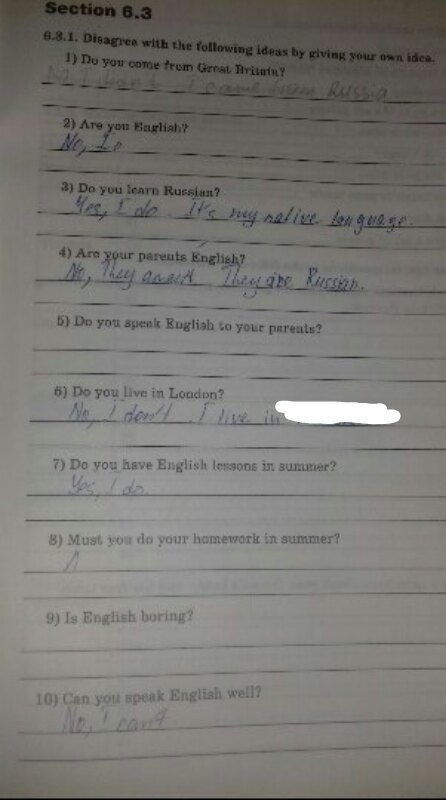 Section 6.3
6.3.1. Disagree with the following ideas by giving your own idea.
1) Do you come from Great Britain?
No, I don't. I came from Russia
2) Are you English?
No, I
3) Do you learn Russian?
Yes, I do. It's my native language.
4) Are your parents English?
No, They aren't They are Russian.
5) Do you speak English to your parents?
6) Do you live in London?
No, I don't. I live in
7) Do you have English lessons in summer?
Yes, I do.
8) Must you do your homework in summer?
9) Is English boring?
10) Can you speak English well?
No, I can't